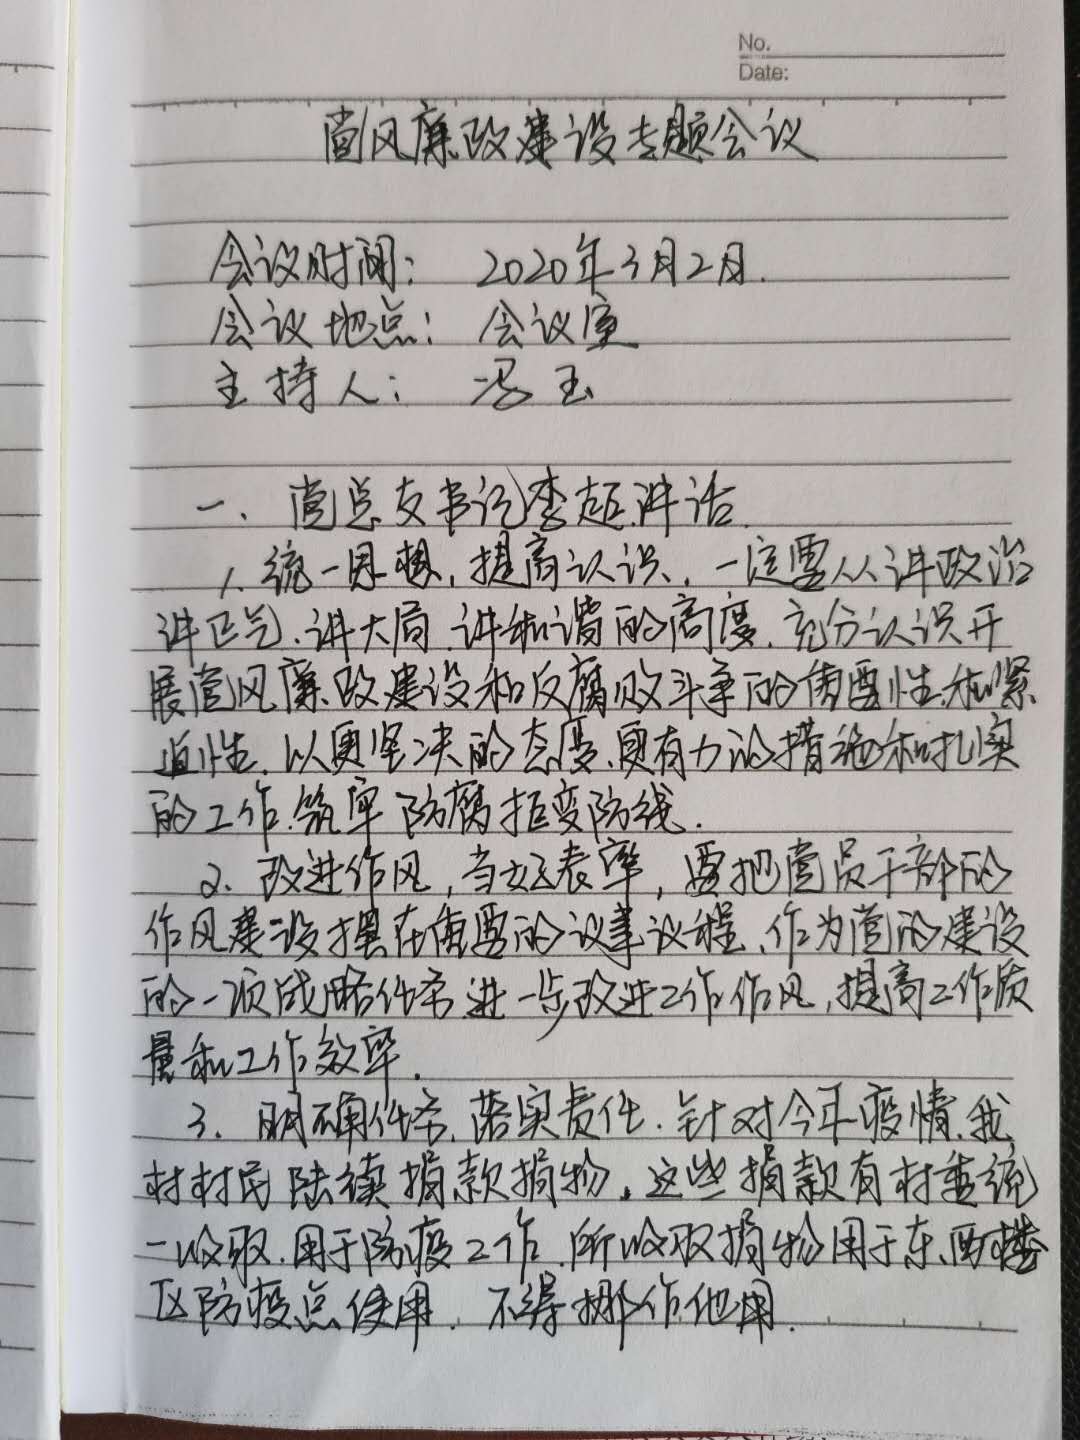 No.
Date:
党风廉政建设专题会议
会议时间: 2020年3月2日.
会议地点: 会议室
主持人: 冯玉
一、党总支书记李超讲话.
1、统一思想,提高认识,一定要从讲政治
讲正气、讲大局、讲和谐的高度,充分认识开
展党风廉政建设和反腐败斗争的重要性和紧
迫性,以更坚决的态度、更有力的措施和扎实
的工作,筑牢防腐拒变防线.
2、改进作风,当好表率,要把党员干部的
作风建设摆在重要的议事议程、作为党的建设
的一项战略任务,进一步改进工作作风,提高工作质
量和工作效率.
3、明确任务,落实责任.针对今年疫情,我
村村民陆续捐款捐物,这些捐款有村委统
一收取,用于防疫工作,所收取捐物用于东、西楼
区防疫点使用,不得挪作他用.